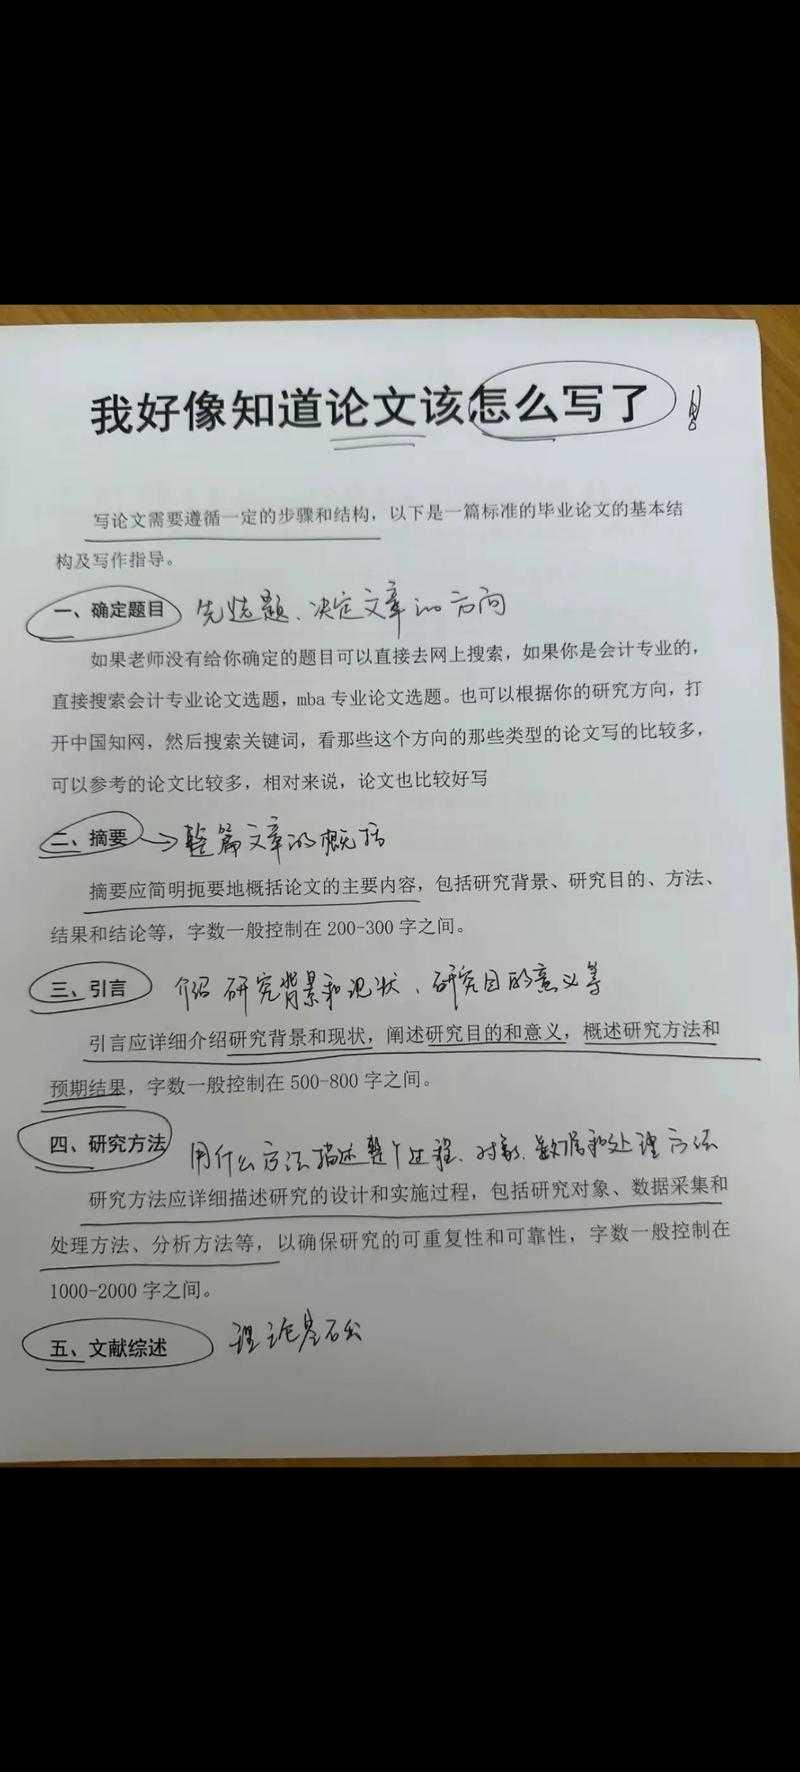 我好像知道论文该怎么写了!
写论文需要遵循一定的步骤和结构，以下是一篇标准的毕业论文的基本结
构及写作指导。
一、确定题目 先选题、决定文章的方向
如果老师没有给你确定的题目可以直接去网上搜索，如果你是会计专业的，
直接搜索会计专业论文选题，mba 专业论文选题。也可以根据你的研究方向，打
开中国知网，然后搜索关键词，看那些这个方向的那些类型的论文写的比较多，
可以参考的论文比较多，相对来说，论文也比较好写
二、摘要 → 整篇文章的概括
摘要应简明扼要地概括论文的主要内容，包括研究背景、研究目的、方法、
结果和结论等，字数一般控制在 200-300 字之间。
三、引言 介绍研究背景和现状、研究目的意义等
引言应详细介绍研究背景和现状，阐述研究目的和意义，概述研究方法和
预期结果，字数一般控制在 500-800 字之间。
四、研究方法 用什么方法描述整个过程、对象、数据和处理方法
研究方法应详细描述研究的设计和实施过程，包括研究对象、数据采集和
处理方法、分析方法等，以确保研究的可重复性和可靠性，字数一般控制在
1000-2000 字之间。
五、文献综述 理论基石